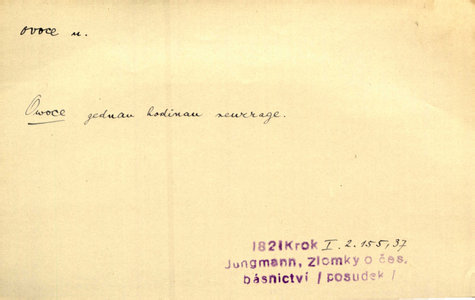 ovoce n.
Owoce gednau hodinau neuzrage.
1821 Krok I. 2. 155, 37
Jungmann, Zlomky o čes.
básnictví / posudek /